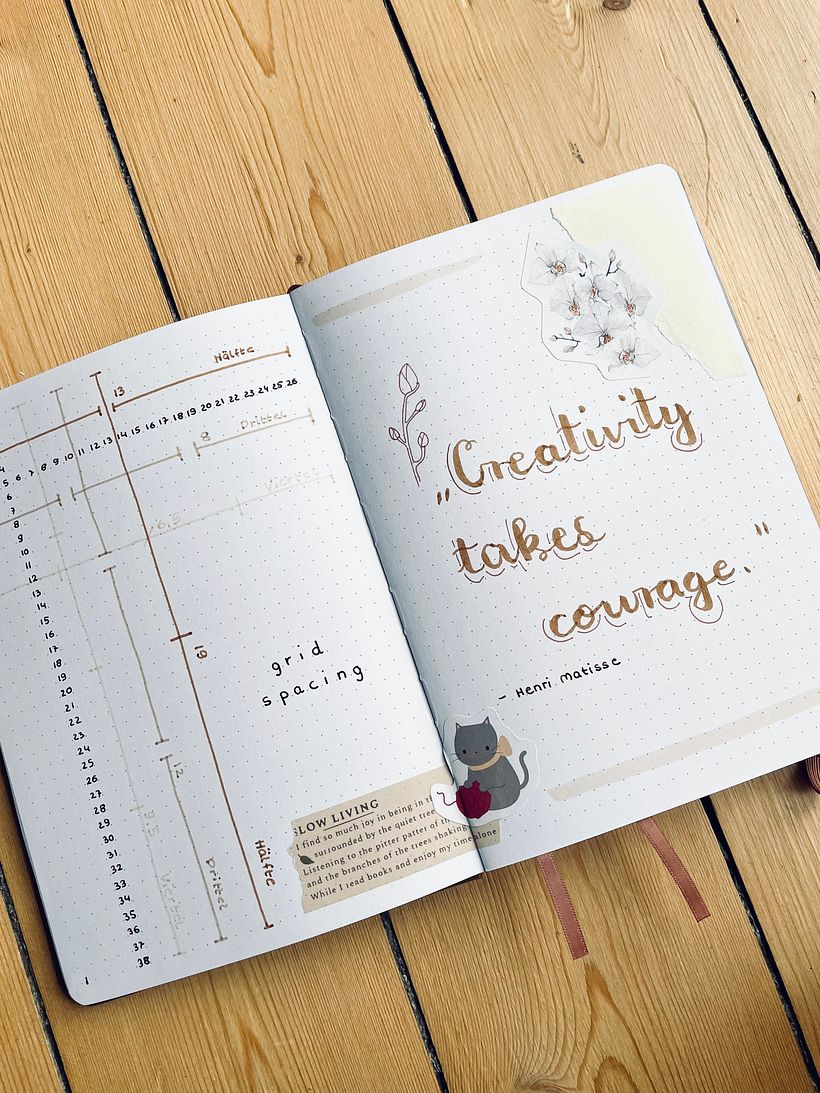 Hälfte
13
4
5 6 7 8 9 10 11 12 13 14 15 16 17 18 19 20 21 22 23 24 25 26
Drittel
Viertel
6,5
6
7
8
9
10
11
12
13
14
15
16
17
18
19
20
21
22
23
24
25
26
27
28
29
30
31
32
33
34
35
36
37
38
19
12
9,5
Viertel
Drittel
Hälfte
grid
spacing
SLOW LIVING
I find so much joy in being in
surrounded by the quiet tree
Listening to the pitter patter of
and the branches of the trees shaking
While I read books and enjoy my time alone
1
„Creativity
takes
courage."
- Henri Matisse